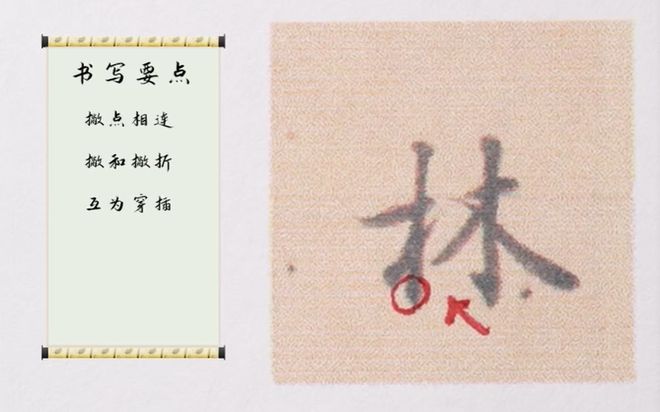 书写要点
撇点相连
撇和撇折
互为穿插
林